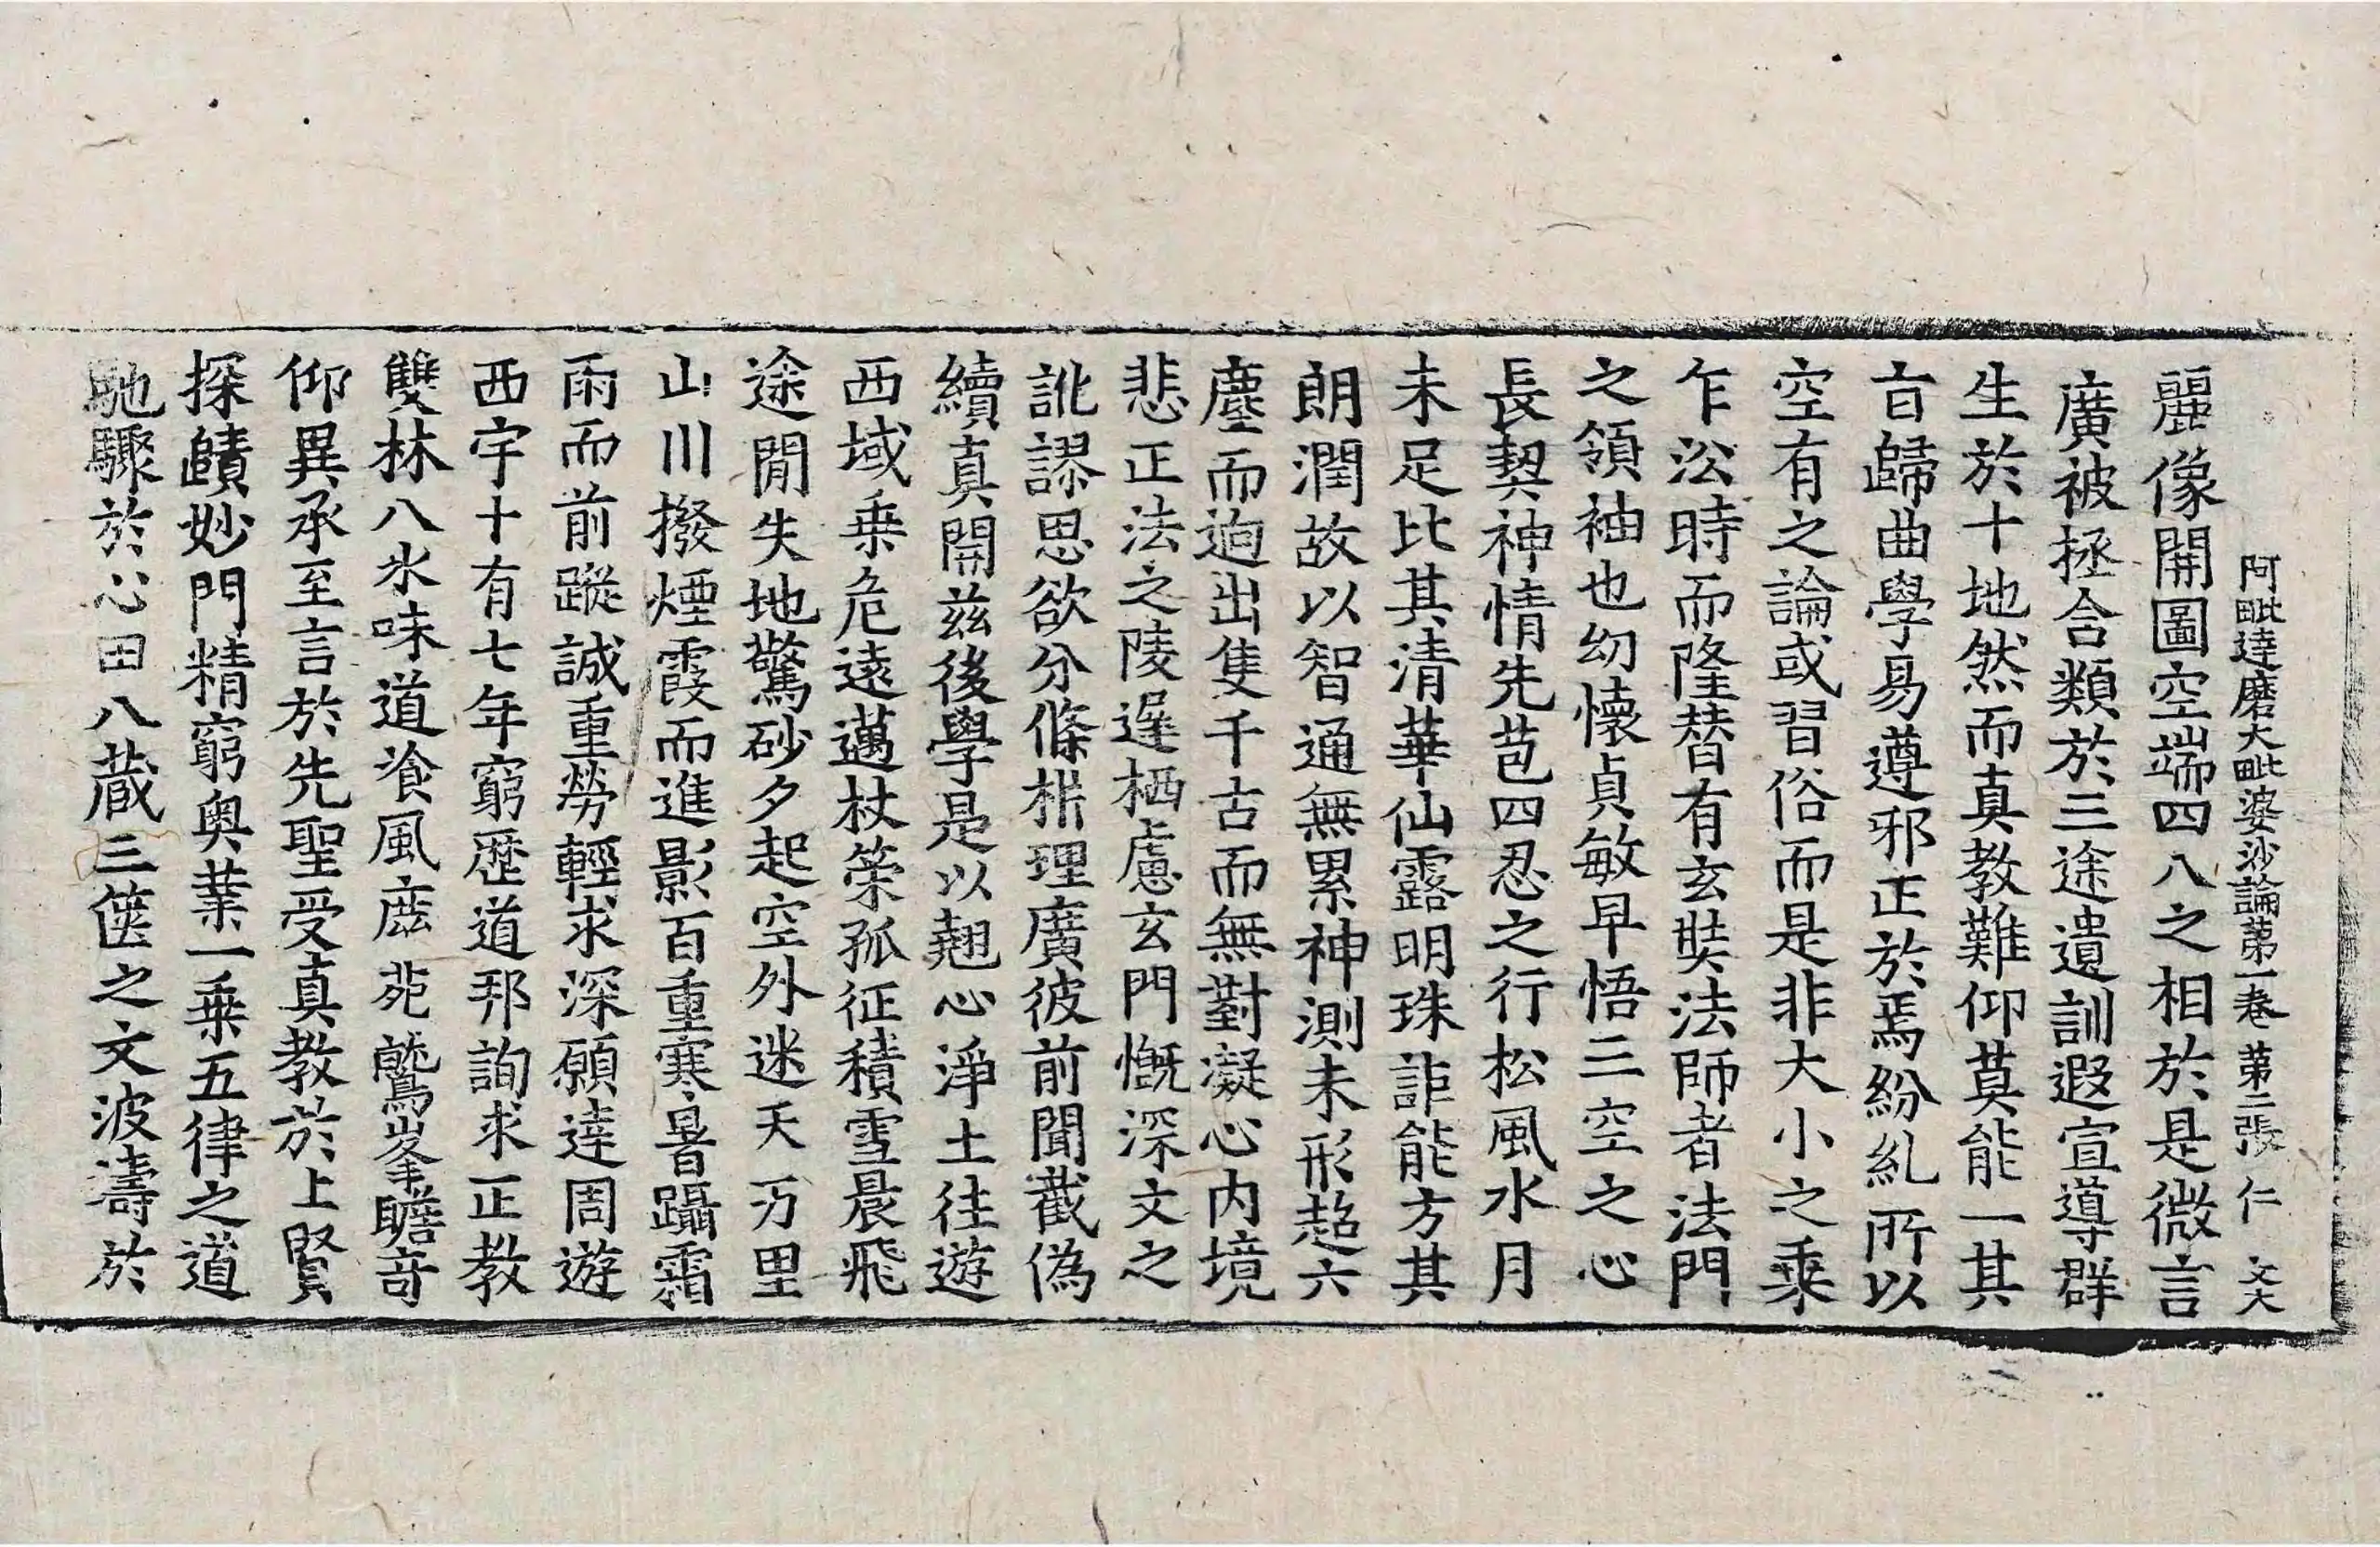 阿毗達磨大毗婆沙論第一卷 第二張 仁 文大
麗像開圖空端四八之相於是微言
廣被拯含類於三途遺訓遐宣導群
生於十地然而真教難仰莫能一其
旨歸曲學易遵邪正於焉紛糺所以
空有之論或習俗而是非大小之乘
乍沿時而隆替有玄奘法師者法門
之領袖也幼懷貞敏早悟三空之心
長契神情先苞四忍之行松風水月
未足比其清華仙露明珠詎能方其
朗潤故以智通無累神測未形超六
塵而逈出隻千古而無對凝心內境
悲正法之陵遲栖慮玄門慨深文之
訛謬思欲分條枿理廣彼前聞截偽
續真開兹後學是以翹心淨土往遊
西域乗危遠邁杖䇿孤征積雪晨飛
途閒失地驚砂夕起空外迷天万里
山川撥煙霞而進影百重寒暑躡霜
雨而前蹤誠重勞輕求深願達周遊
西宇十有七年窮歷道邦詢求正教
雙林八水味道飡風鹿菀鷲峯瞻奇
仰異承至言於先聖受真教於上賢
探賾妙門精窮奧業一乗五律之道
馳驟於心田八蔵三篋之文波濤於